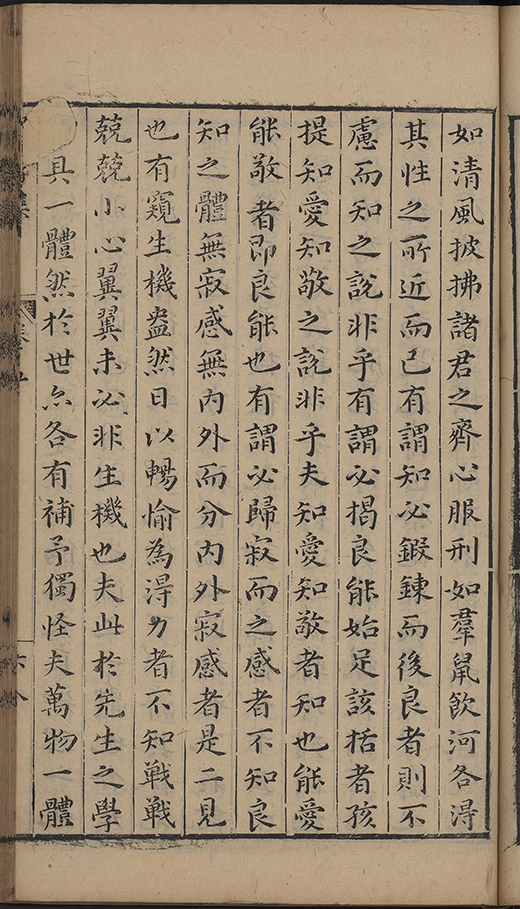 如清風披拂諸君之齊心服刑如羣鼠飲河各淂
其性之所近而已有謂知必鍛鍊而後良者則不
慮而知之說非乎有謂必揭良能始足該括者孩
提知愛知敬之說非乎夫知愛知敬者知也能愛
能敬者即良能也有謂必歸寂而之感者不知良
知之體無寂感無內外而分內外寂感者是二見
也有窺生機盎然日以暢愉為淂力者不知戰戰
兢兢小心翼翼未必非生機也夫此於先生之學
具一體然於世亦各有補予獨怪夫萬物一體